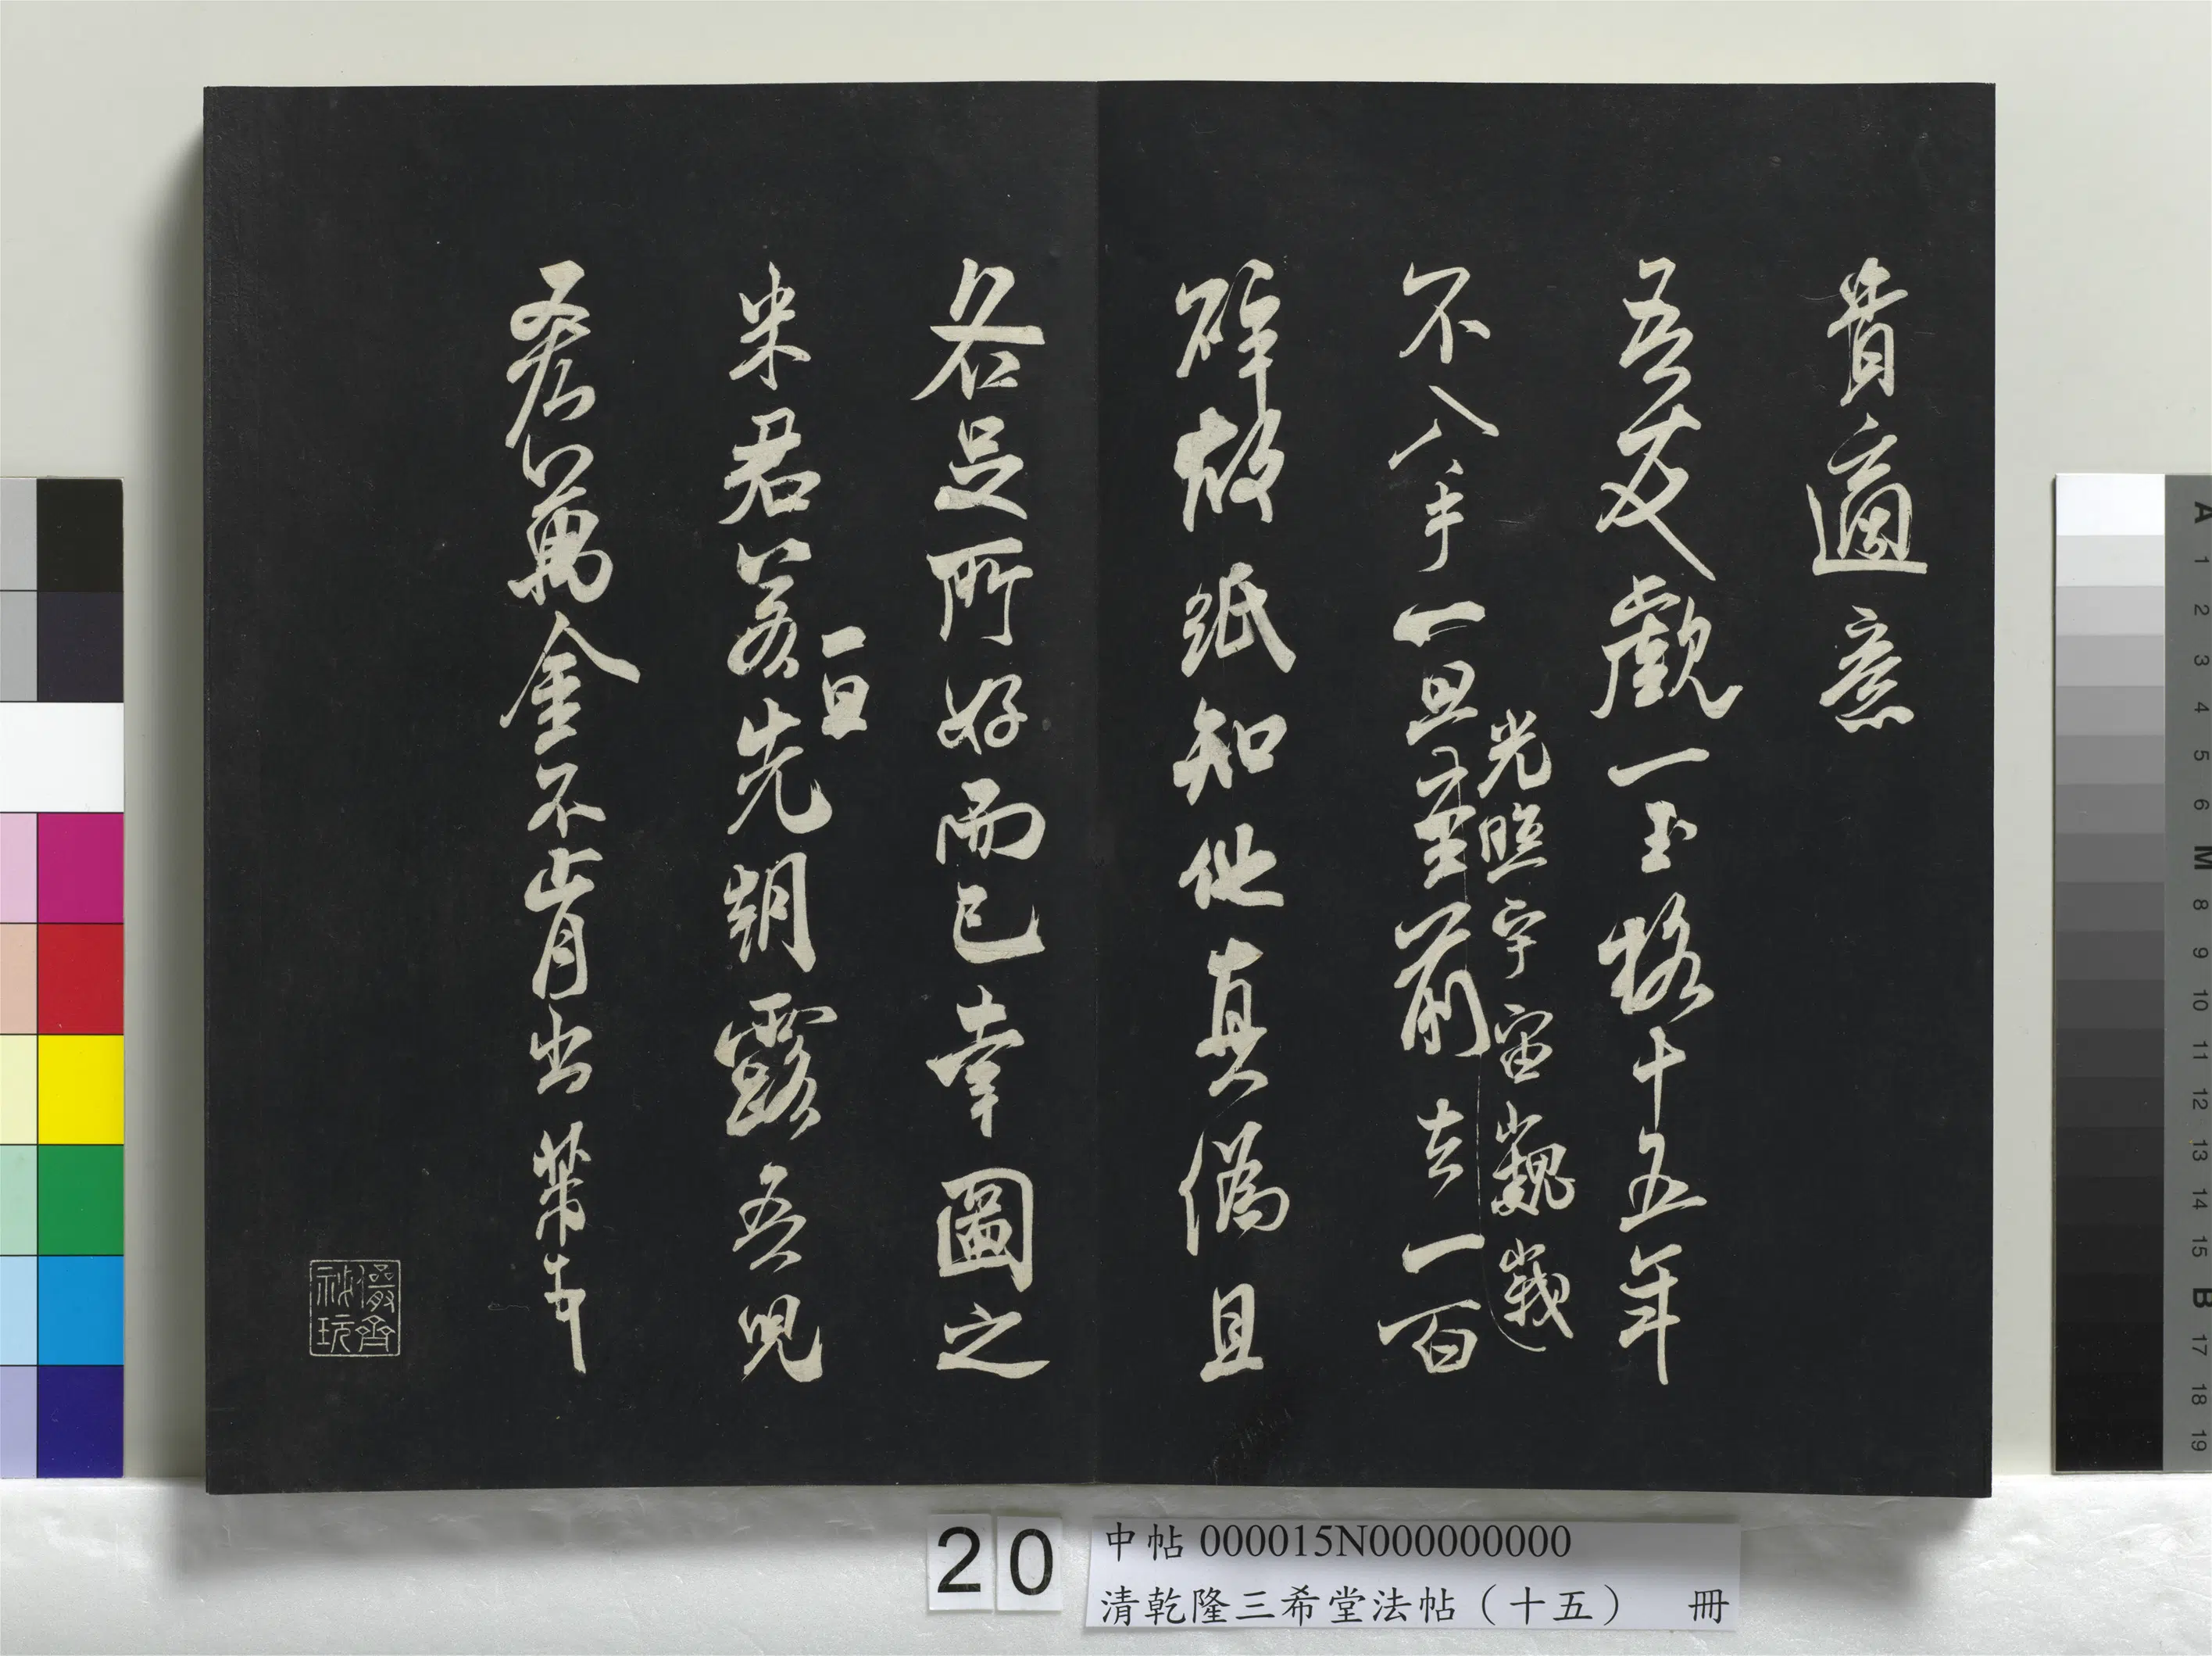 貴適意
吾友觀一玉格十五年
不入手一旦至前去一百
光照宇宙巍峩
碎故紙知他真偽且
各足所好而已幸圖之
米君若先朝露吾兒
一旦
吝萬金不肯出芾頓首
儼齋秘玩
20
中帖 000015N000000000
清乾隆三希堂法帖（十五） 冊
A 1 2 3 4 5 6 M 8 9 10 11 12 13 14 15 B 17 18 19